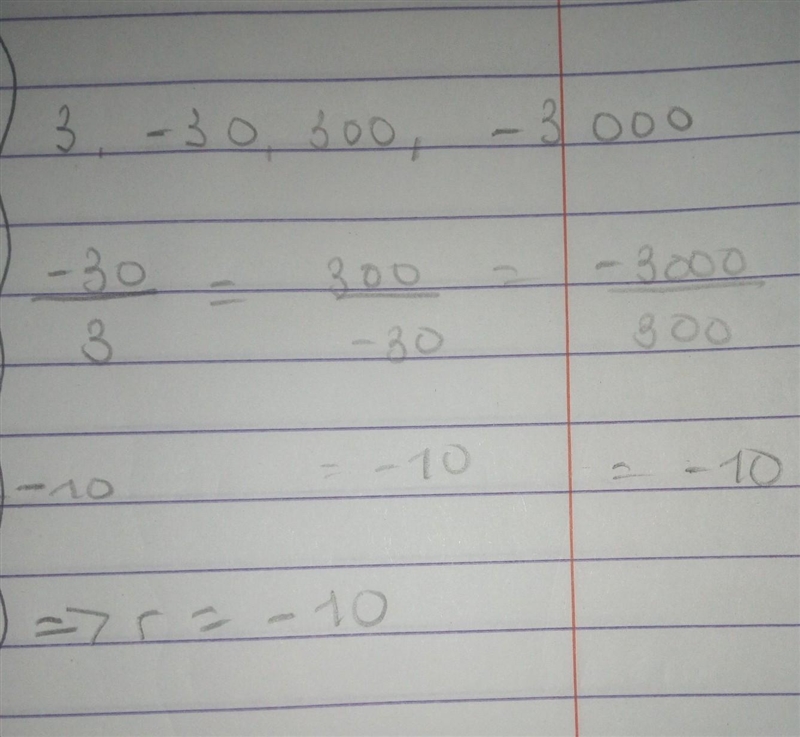 3, -30, 300, -3000
-30/3 = 300/-30 = -3000/300
-10 = -10 = -10
=> r = -10